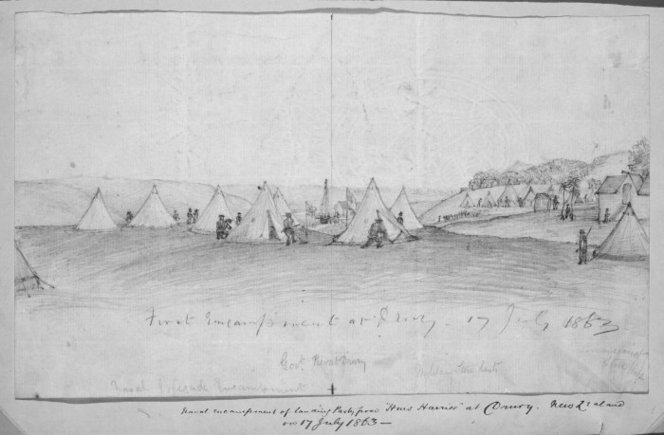 First Encampment at Drury - 17 July 1863
Govt.
Naval Brigade Encampment
Naval encampment of landing Party from "Hms Harrier" at Drury. New Zealand
on 17 July 1863 —